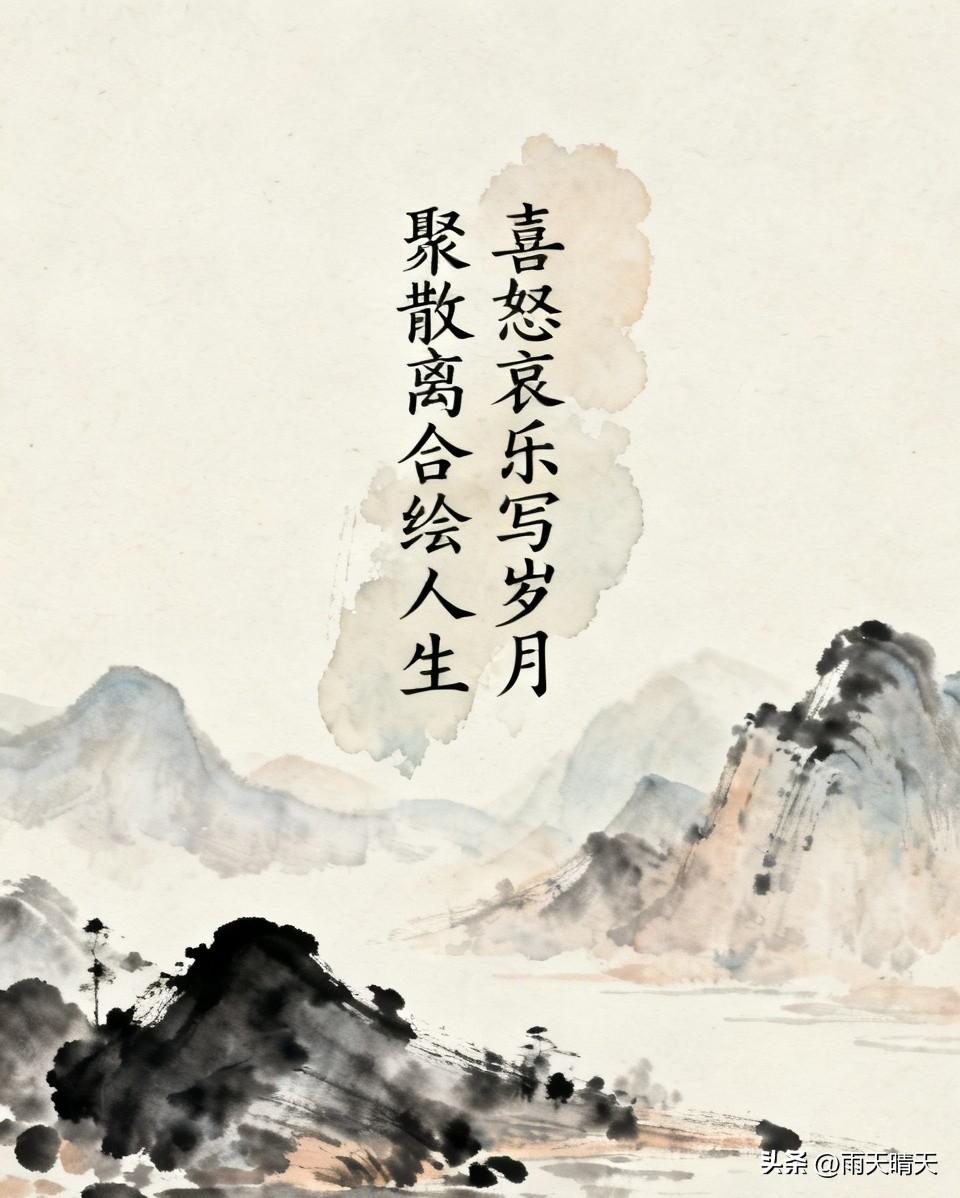 喜怒哀乐写岁月
聚散离合绘人生
头条 @雨天晴天